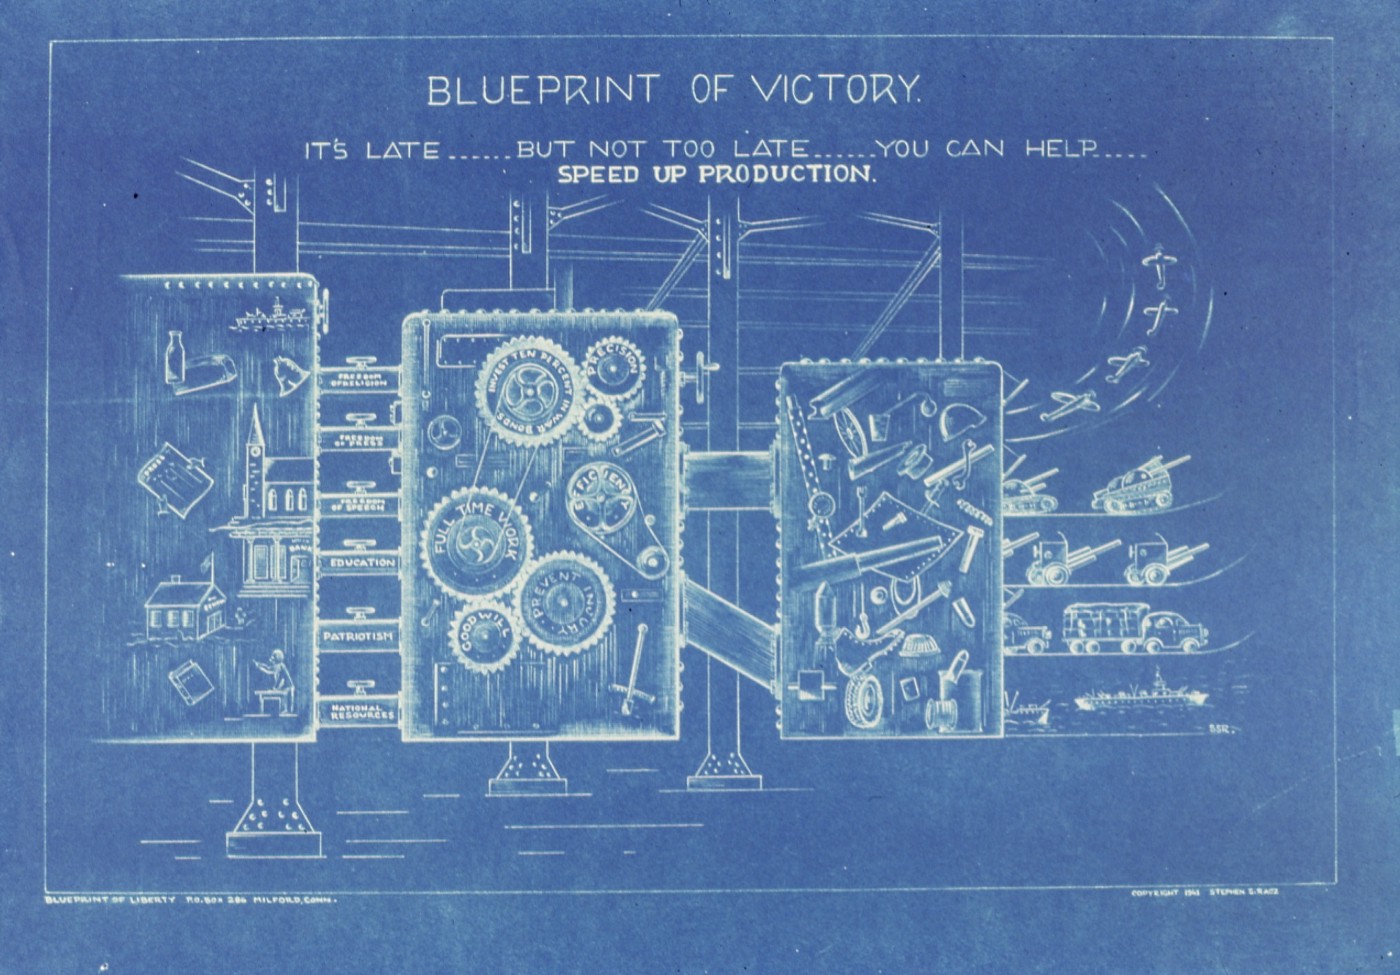 BLUEPRINT OF VICTORY.
IT'S LATE......BUT NOT TOO LATE......YOU CAN HELP.....
SPEED UP PRODUCTION.
FREEDOM
OF RELIGION
FREEDOM
OF PRESS
FREEDOM
OF SPEECH
EDUCATION
PATRIOTISM
NATIONAL
RESOURCES
BANK
INVEST TEN PERCENT IN WAR BONDS
PRECISION
EFFICIENCY
FULL TIME WORK
PREVENT INJURY
GOODWILL
SSR.
BLUEPRINT OF LIBERTY P.O. BOX 286 MILFORD, CONN.
COPYRIGHT STEPHEN S. RACZ